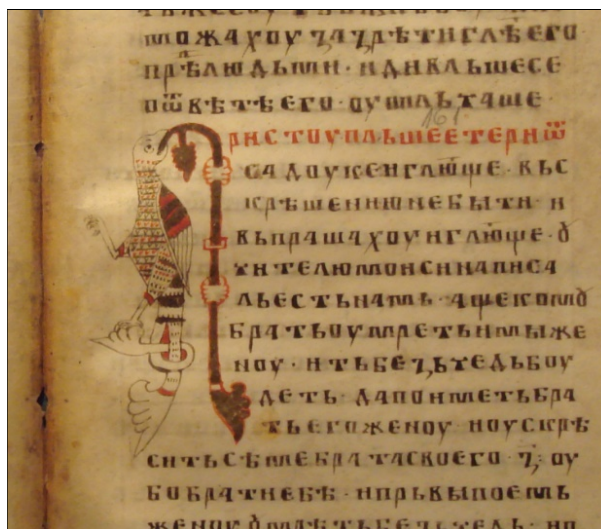 можахоу ꙁаꙁрѣти глѣ его
прѣ людьми · и дивльшесе
о ѿвѣтѣ его · оумльчаше ·
161
ристоупльше етери ѿ
садоукеи глюще · вьс
крѣшению не быти · и
вьпрашахоу и глюще · ꙋ
чителю моиси написа
ль есть намь · аще комꙋ
брать оумреть имы же
ноу · и ть беꙁьчедь боу
деть · да поиметь бра
ть его женоу · и оускрѣ
сить сѣме брата своего · ꙁ҃ · оу
бо братие бѣ · и прьвы поемь
женоу ꙋмрѣть